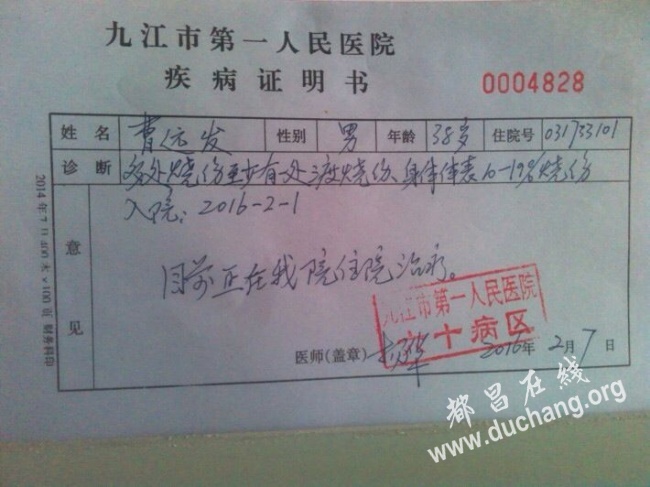 九江市第一人民医院
疾病证明书
0004828
姓名 曹 发 性别 男 年龄 38岁 住院号 031733101
诊断 多处烧伤至少有一处三度烧伤、身体体表10-19%烧伤
入院:2016-2-1
意见
目前正在我院住院治疗。
九江市第一人民医院
十病区
医师(盖章) 2016年2月7日
2014年7月 400本×100页 财务科印
都昌在线
www.duchang.org